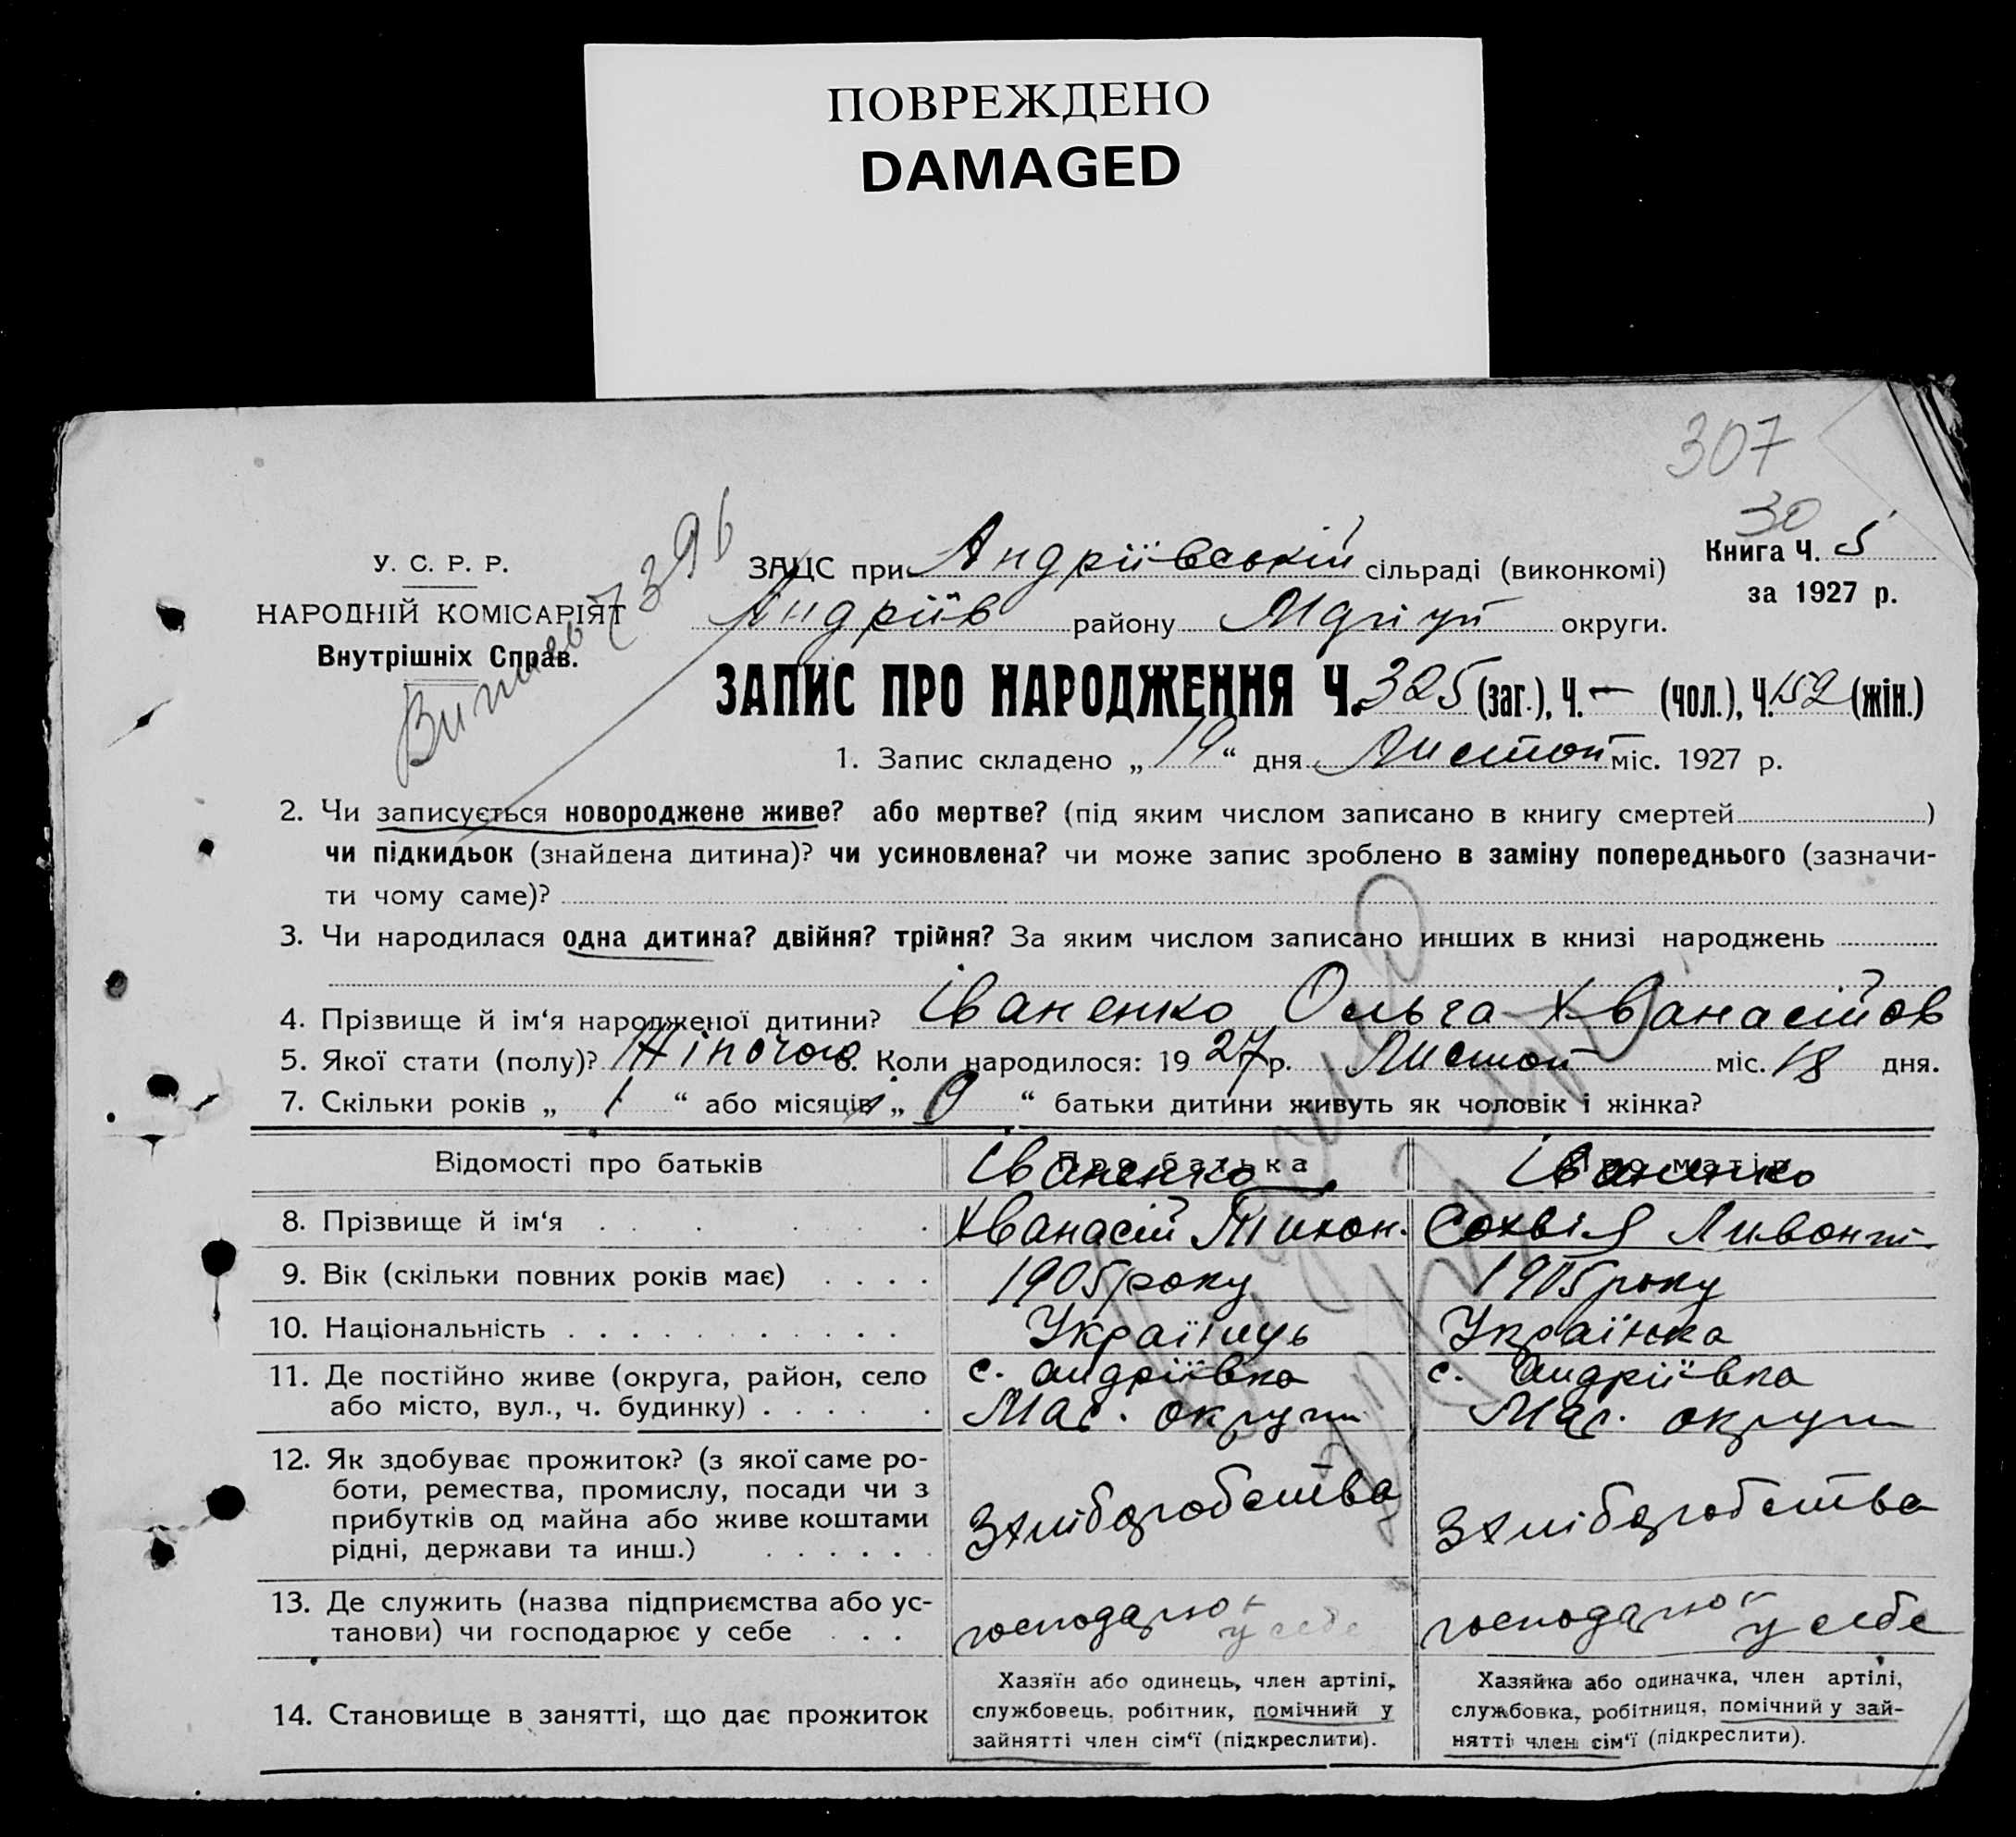 ПОВРЕЖДЕНО
DAMAGED
307
30
У. С. Р. Р.
НАРОДНІЙ КОМІСАРІЯТ
Внутрішніх Справ.
396
ЗАЦС при Андріївській сільраді (виконкомі)
Книга Ч. 5
за 1927 р.
Андріїв району округи.
ЗАПИС ПРО НАРОДЖЕННЯ Ч. 325 (заг.), Ч. — (чол.), Ч. 152 (жін.)
1. Запис складено „ 19 “ дня Листоп міс. 1927 р.
2. Чи записується новороджене живе? або мертве? (під яким числом записано в книгу смертей )
чи підкидьок (знайдена дитина)? чи усиновлена? чи може запис зроблено в заміну попереднього (зазначи-
ти чому саме)?
3. Чи народилася одна дитина? двійня? трійня? За яким числом записано инших в книзі народжень
4. Прізвище й ім‘я народженої дитини? Іваненко Ольга Хванасійов
5. Якої стати (полу)? Жіночою 6. Коли народилося: 1927 р. Листоп міс. 18 дня.
7. Скільки років „ 1 “ або місяців „ 9 “ батьки дитини живуть як чоловік і жінка?
Відомості про батьків Про батька Про матір
Іваненко Іваненко
8. Прізвище й ім‘я Хванасій Тихон. Сохвія Ливонт.
9. Вік (скільки повних років має) 1905 року 1905 року
10. Національність Українць Українка
11. Де постійно живе (округа, район, село с. Андріївка с. Андріївка
або місто, вул., ч. будинку) округи округи
12. Як здобуває прожиток? (з якої саме ро-
боти, ремества, промислу, посади чи з
прибутків од майна або живе коштами
рідні, держави та инш.) Зхліборобства Зхліборобства
13. Де служить (назва підприємства або ус-
танови) чи господарює у себе господарює у себе господарює у себе
14. Становище в занятті, що дає прожиток
Хазяїн або одинець, член артілі,
службовець, робітник, помічний у
зайнятті член сім‘ї (підкреслити).
Хазяйка або одиначка, член артілі,
службовка, робітниця, помічний у зай-
нятті член сім‘ї (підкреслити).